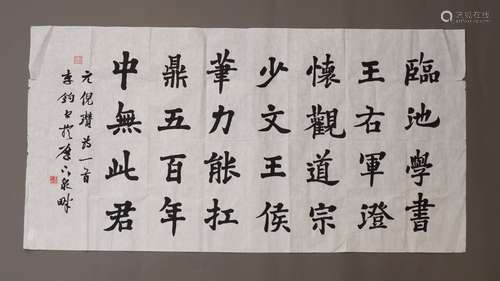 臨池學書
王右軍澄
懷觀道宗
少文王侯
筆力能扛
鼎五百年
中無此君
元倪瓚詩一首
鈞書於
泉畔